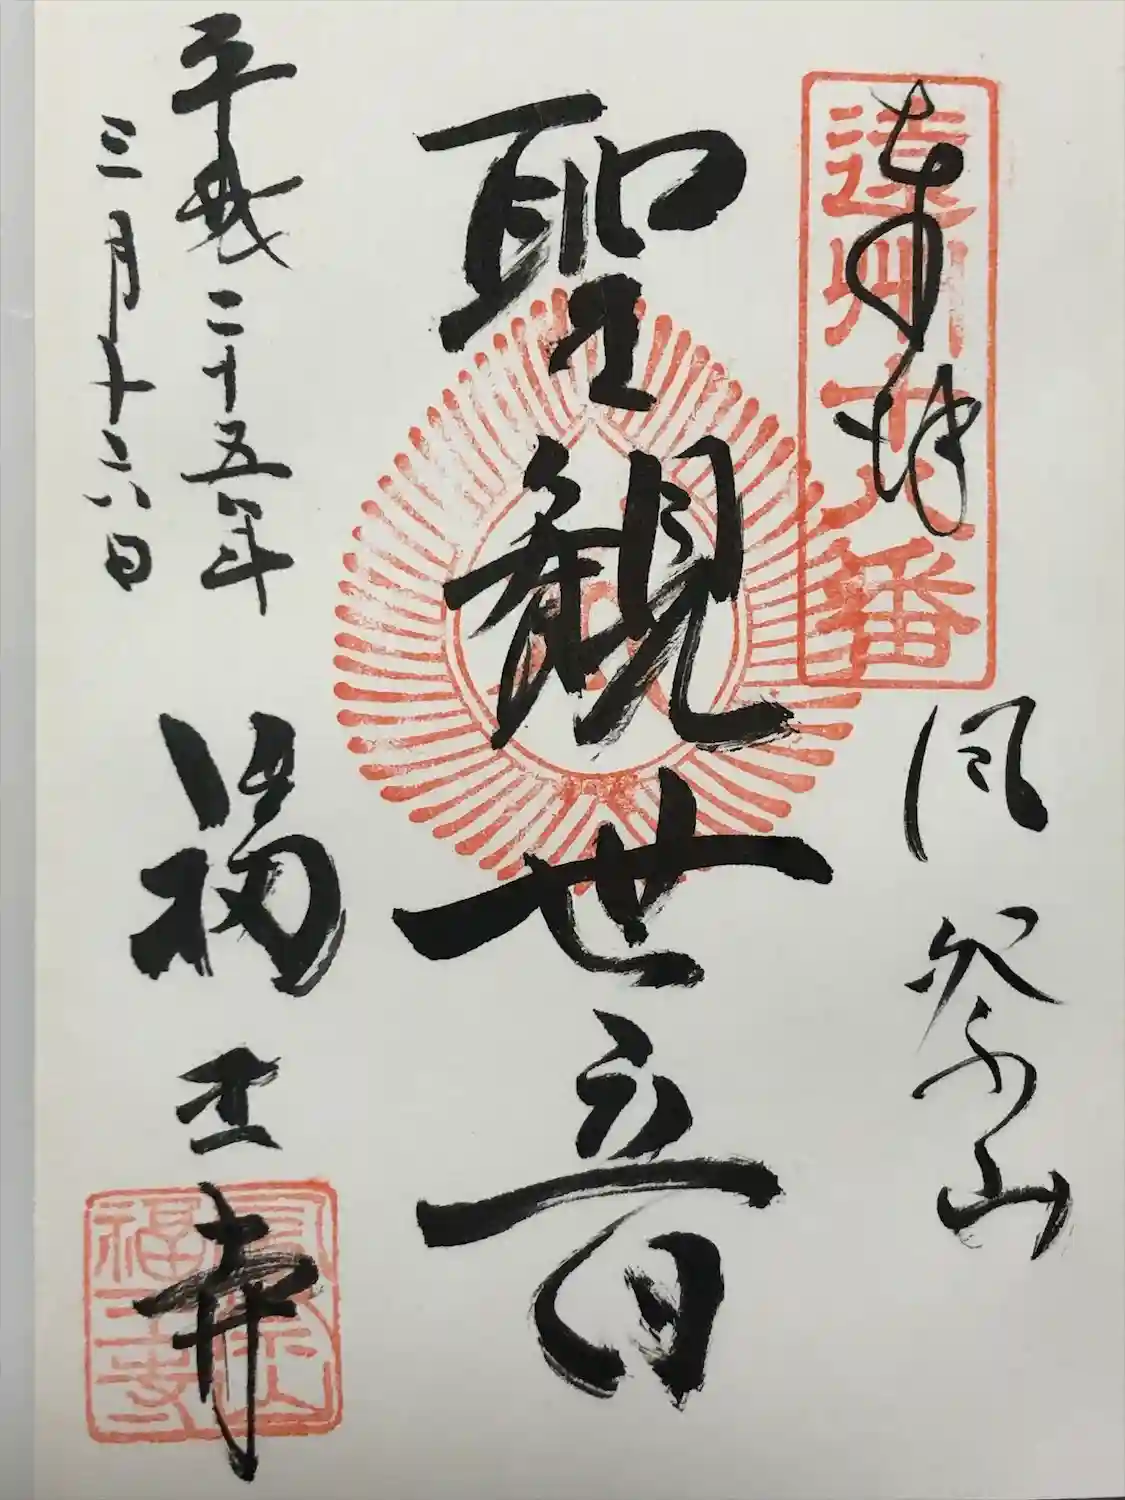 遠州六番
奉拝
風祭山
聖観世音
平成二十五年
三月十六日
福王寺
風祭山
福王寺